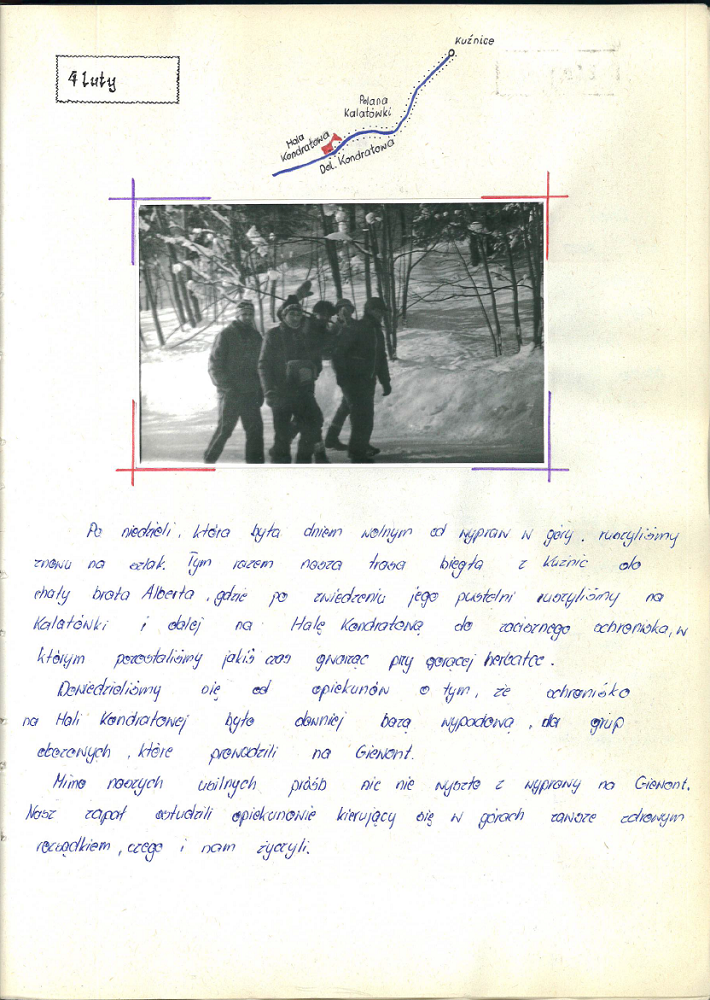 4 luty
Kuźnice
Polana
Kalatówki
Hala
Kondratowa
Dol. Kondratowa
Po niedzieli, która była dniem wolnym od wypraw w góry, ruszyliśmy
znowu na szlak. Tym razem nasza trasa biegła z Kuźnic do
chaty brata Alberta, gdzie po zwiedzeniu jego pustelni ruszyliśmy na
Kalatówki i dalej na Halę Kondratową do zacisznego schroniska, w
którym pozostaliśmy jakiś czas gwarząc przy gorącej herbatce.
Dowiedzieliśmy się od opiekunów o tym, że schronisko
na Hali Kondratowej było dawniej bazą wypadową, dla grup
obozowych, które prowadzili na Giewont.
Mimo naszych usilnych próśb nic nie wyszło z wyprawy na Giewont.
Nasz zapał ostudzili opiekunowie kierujący się w górach zawsze zdrowym
rozsądkiem, czego i nam życzyli.